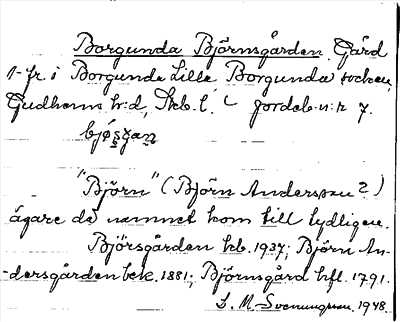 Borgunda Björnsgården. Gård
1-fr i Borgunda Lilla Borgunda socken,
Gudhems hd, Skb. l. jordeb. n:r 7.
"Björn" (Björn Andersson?)
ägare då namnet kom till tydligen.
Björsgården kb. 1937; Björn An-
dersgården bek. 1881; Björnsgård hfl. 1791.
L. M. Svenungsson, 1948.